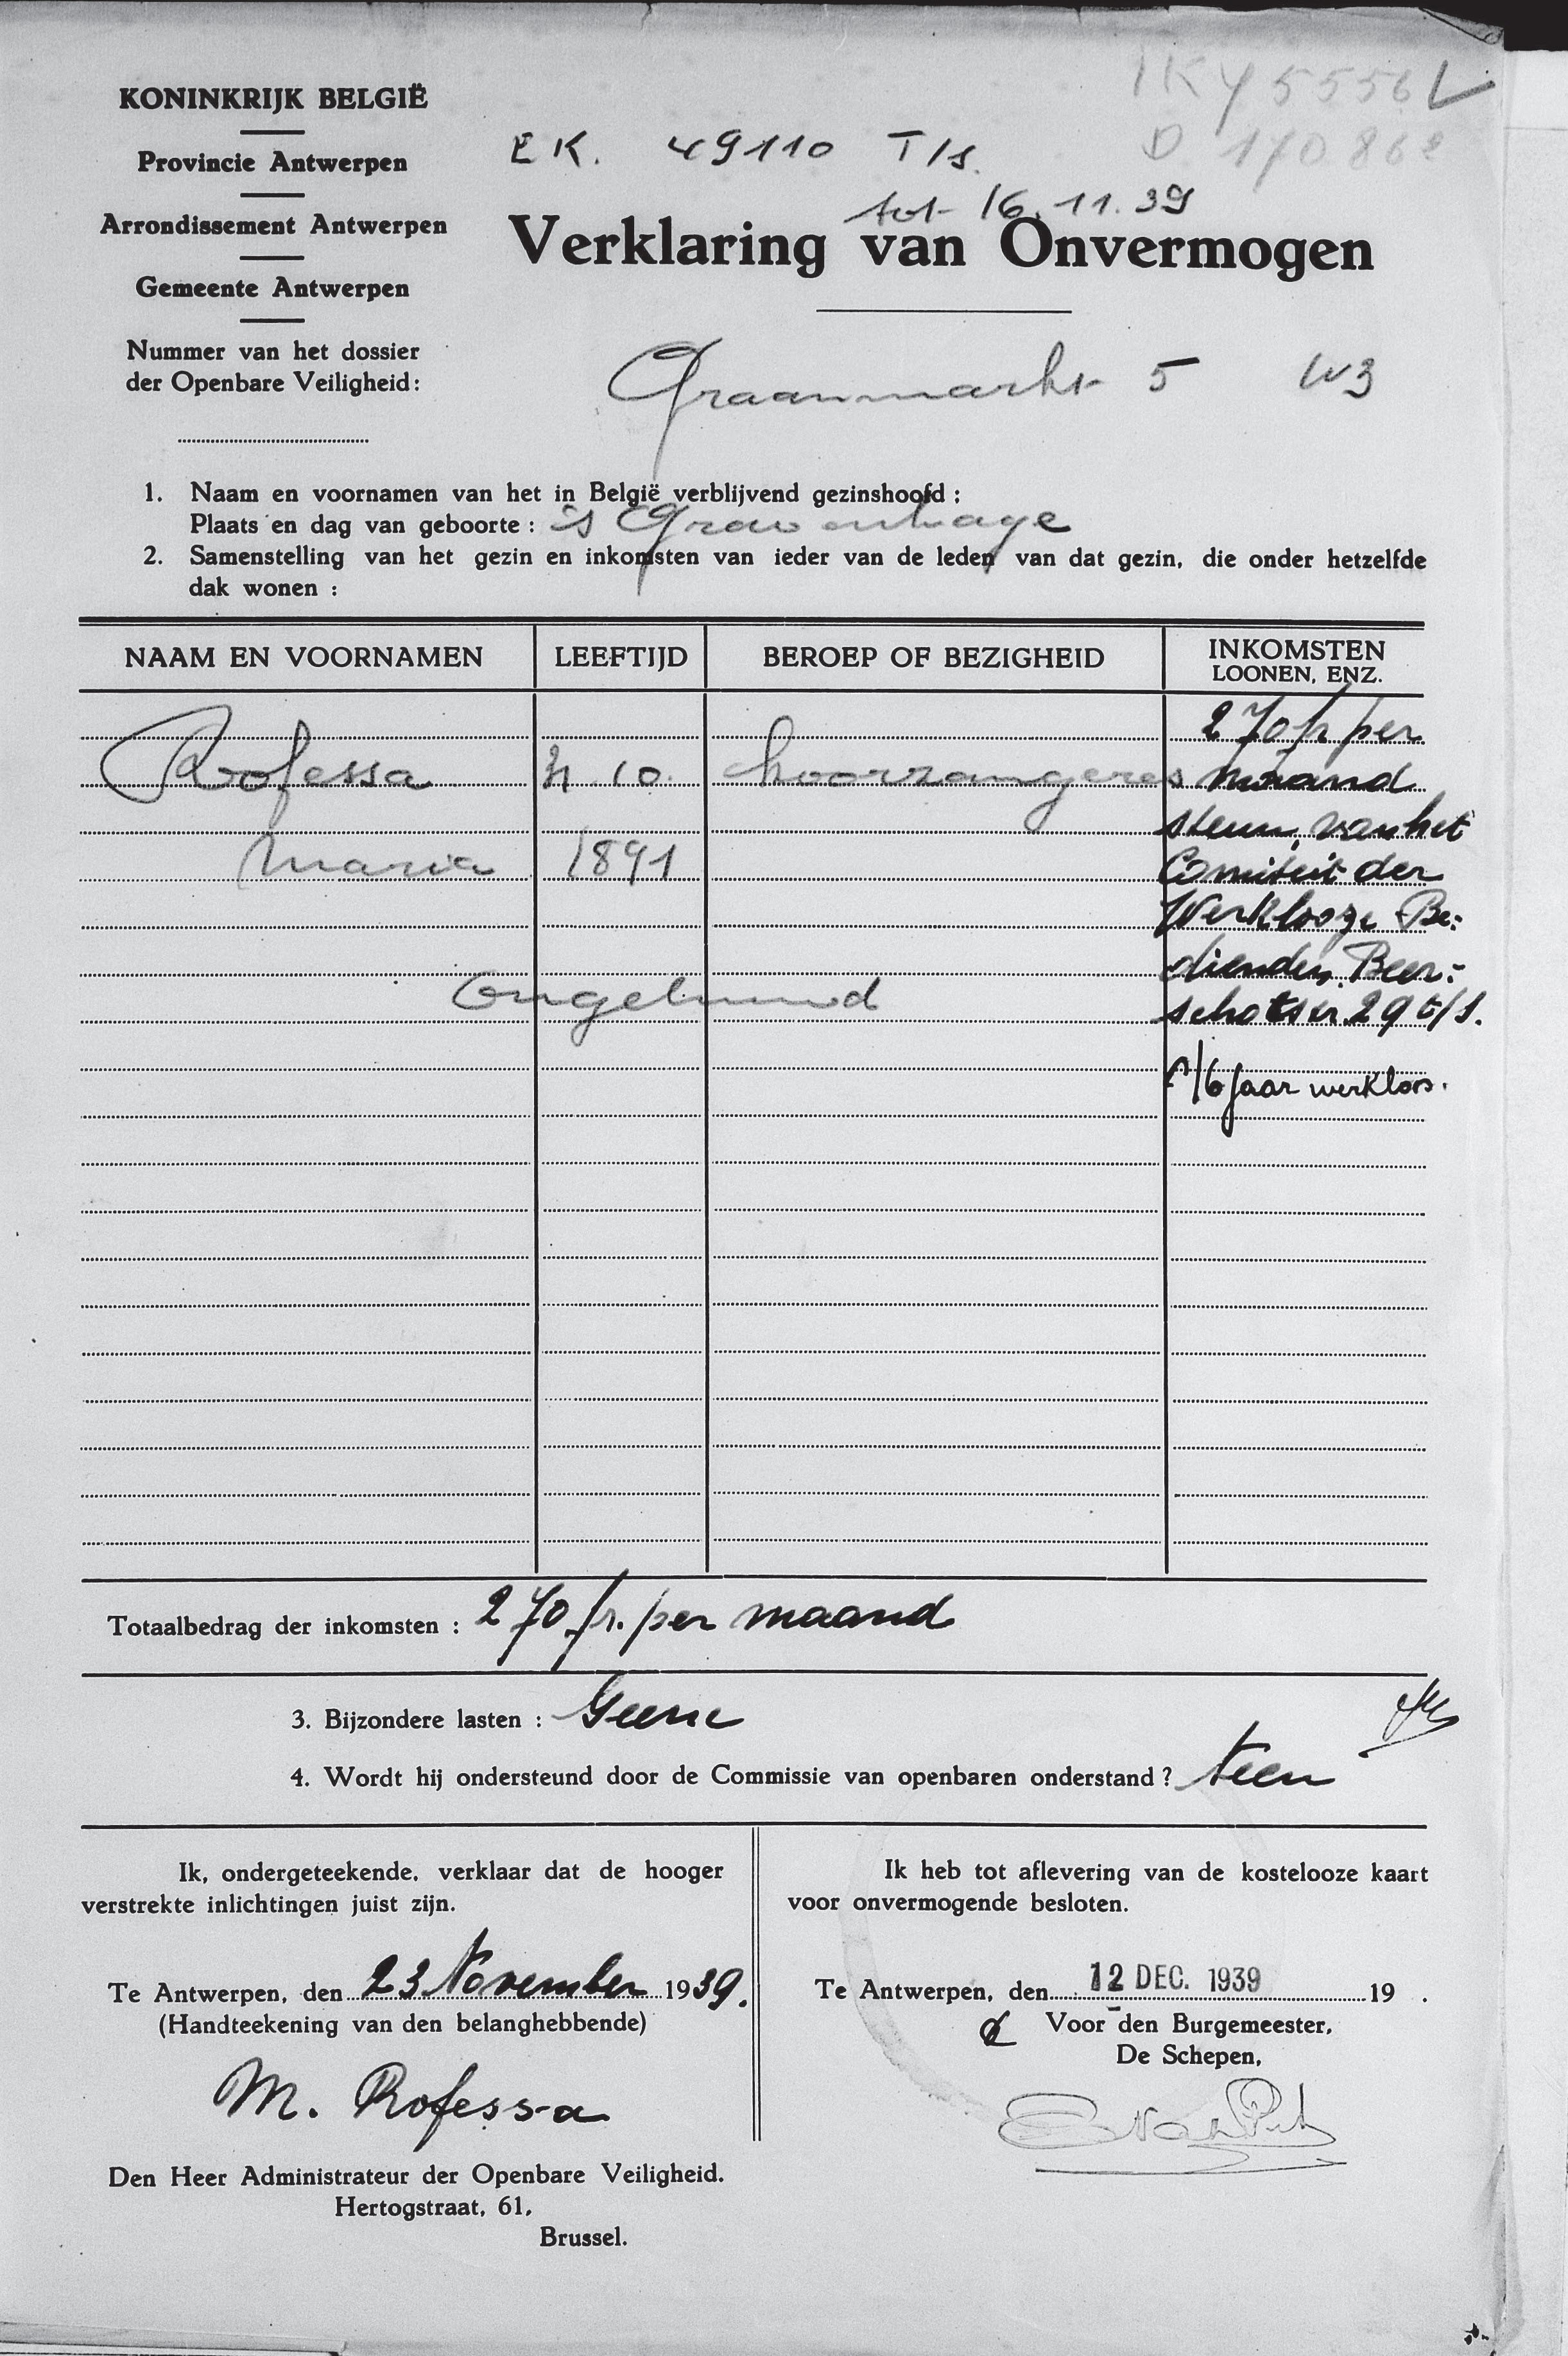 KONINKRIJK BELGIË
Provincie Antwerpen
Arrondissement Antwerpen
Gemeente Antwerpen
Nummer van het dossier
der Openbare Veiligheid:
EK. 49110 T/s.
tot 16.11.39
Verklaring van Onvermogen
Graanmarkt 5 W3
1. Naam en voornamen van het in België verblijvend gezinshoofd :
Plaats en dag van geboorte : 's Gravenhage
2. Samenstelling van het gezin en inkomsten van ieder van de leden van dat gezin, die onder hetzelfde
dak wonen :
NAAM EN VOORNAMEN LEEFTIJD BEROEP OF BEZIGHEID INKOMSTEN
LOONEN, ENZ.
270 fr per
Rofessa 10. koorzangeres maand
steun van het
Maria 1891 Comiteit der
Werklooze Be-
diende, Beer-
Ongehuwd schotstr. 29 t/s.
6 jaar werkloos.
Totaalbedrag der inkomsten : 270 fr. per maand
3. Bijzondere lasten : Geene
4. Wordt hij ondersteund door de Commissie van openbaren onderstand ? Neen
Ik, ondergeteekende, verklaar dat de hooger
verstrekte inlichtingen juist zijn.
Te Antwerpen, den 23 November 1939.
(Handteekening van den belanghebbende)
M. Rofessa
Den Heer Administrateur der Openbare Veiligheid.
Hertogstraat, 61,
Brussel.
Ik heb tot aflevering van de kostelooze kaart
voor onvermogende besloten.
Te Antwerpen, den 12 DEC. 1939 19 .
Voor den Burgemeester,
De Schepen,